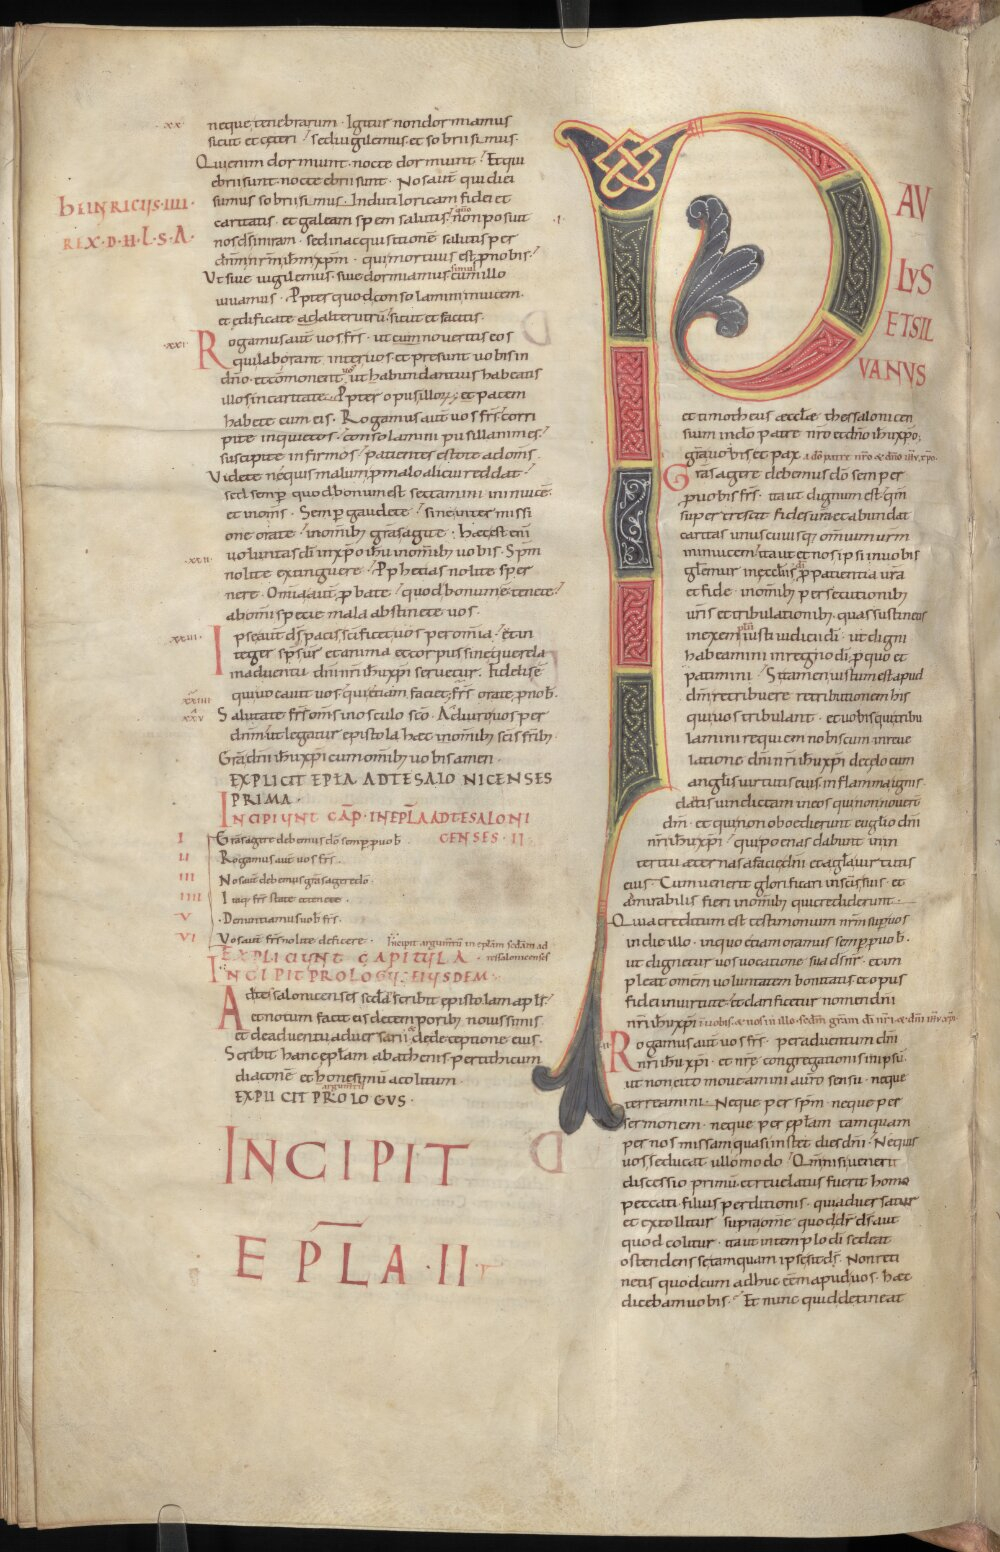 hEINRICVS·IIII·
REX·D·H·L·S·A·
xx· neque tenebrarum· Igitur non dormiamus
sicut et ceteri· sed uigilemus et sobrii simus·
Qui enim dormiunt· nocte dormiunt· Et qui
ebrii sunt· nocte ebrii sunt· Nos aut̄ qui diei
sumus sobrii simus· Induti loricam fidei et
caritatis· et galeam spem salutis· qm̄o non posuit
nos d̄s in iram· sed in acquisitionē salutis per
dn̄m nr̄m ih̄m xp̄m· qui mortuus est ꝓ nobis·
Ut siue uigilemus· siue dormiamus simul cum illo
uiuamus· Ꝓpter quod consolamini inuicem·
et edificate ad alterutrū· sicut et facitis·
·xxi· Rogamus aut̄ uos fr̄s· ut cum noueritis eos
qui laborant inter uos· et presunt uobis in
dn̄o· et cōmonent uos· ut habundantius habeatis
illos in caritate· Ꝓpter opus illoꝝ· et pacem
habete cum eis· Rogamus aut̄ uos fr̄s· corri
pite inquietos· consolamini pusillanimes·
suscipite infirmos· patientes estote ad om̄s·
Videte ne quis malum ꝓ malo alicui reddat·
sed semꝑ quod bonum est sectamini in inuicē
et in om̄s· Semꝑ gaudete· sine intermissi
one orate· in omīb; gr̄as agite· hæc est eni
·xxii· uoluntas dī in xp̄o ih̄u in omīb; uobis· Sp̄m
nolite extinguere· Ꝓphetias nolite sper
nere· Omīa aut̄ ꝓbate· quod bonum ē tenete·
ab om̄i specie mala abstinete uos·
·xxiii· Ipse aut̄ d̄s pacis sc̄ificet uos per om̄ia· et in
teger sp̄s ur̄ et anima et corpus sine querela
in aduentu dn̄i nr̄i ih̄u xp̄i seruetur· Fidelis ē
qui uocauit uos· qui etiam faciet· fr̄s orate ꝓ nob̄·
xxiiii
xxv Salutate fr̄s om̄s in osculo sc̄o· Adiuro uos per
dn̄m ut legatur epistola hæc in omīb; sc̄is fr̄ib;
Gr̄a dn̄i ih̄u xp̄i cum omīb; uobis amen·
EXPLICIT EPLA ADTESALONICENSES
PRIMA·
INCIPIVNT CAP̄· IN EPL̄A ADTESALONI
CENSES· II·
I Gr̄as agere debemus dō semꝑ ꝓ uob̄
II Rogamus aut̄ uos fr̄s·
III Nos aut̄ debemus gr̄as agere dō·
IIII Itaq; fr̄s state et tenete·
V ·Denuntiamus uob̄ fr̄s·
VI Vos aut̄ fr̄s nolite deficere· Incipit argum̄tū in ep̄lam sc̄dam ad
tessalonicenses
EXPLICIVNT CAPITVLA·
INCIPIT PROLOGVS EIVSDEM·
Ad tessalonicenses sc̄da scribit epistolam ap̄ls
et notum facit eis de temporib; nouissimis·
et de aduentu aduersarii & de deceptione eius·
Scribit hanc ep̄lam ab athenis per tithicum
diaconē et honesimū acolitum·
argumtū
EXPLICIT PROLOGVS·
INCIPIT
EPL̄A·II·
PAV
LVS
ET SIL
VANVS
et timotheus æccl̄æ thessalonicen
sium in dō patre nr̄o et dn̄o ih̄u xp̄o·
gr̄a uobis et pax a dō patre nr̄o & dn̄o ih̄u xp̄o·
Gr̄as agere debemus dō semper
ꝓ uobis fr̄s· ita ut dignum est· qm̄
super crescit fides ur̄a et abundat
caritas unius cuiusq; omnium ur̄m
in inuicem· ita ut et nos ipsi in uobis
gl̄emur in æccl̄iis dī ꝓ patientia ur̄a
et fide· in omīb; persecutionib;
ur̄is et tribulationib; quas sustinetis
in exemplū iusti iudicii dī· ut digni
habeamini in regno dī· ꝓ quo et
patimini· Si tamen iustum est apud
dm̄ retribuere retributionem his
qui uos tribulant· et uobis qui tribu
lamini requiem nobiscum in reue
latione dn̄i nr̄i ih̄u xp̄i de cęlo cum
anglīs uirtutis eius· in flamma ignis
dātis uindictam in eos qui non nouer̄
dm̄· et qui non oboedierunt euḡlio dn̄i
nr̄i ih̄u xp̄i· qui poenas dabunt in in
teritu æternas a facie dn̄i· et a gl̄a uirtutis
eius· Cum uenerit glorificari in sc̄is suis· et
admirabilis fieri in omīb; qui crediderunt·
Quia creditum est testimonium nr̄m super uos
in die illo· in quo etiam oramus semꝑ ꝓ uob̄·
ut dignetur uos uocatione sua d̄s nr̄· et im
pleat omēm uoluntatem bonitatis et opus
fidei in uirtute· et clarificetur nomen dn̄i
nr̄i ih̄u xp̄i in uobis· & uos in illo· sc̄dm̄ gr̄am dī nr̄i & dn̄i ih̄u xp̄i·
·ii· Rogamus aut̄ uos fr̄s· per aduentum dn̄i
nr̄i ih̄u xp̄i· et nr̄e congregationis in ipsū·
ut non cito moueamini a ur̄o sensu· neque
terreamini· Neque per sp̄m· neque per
sermonem· neque per ep̄lam tamquam
per nos missam quasi instet dies dn̄i· Ne quis
uos seducat ullo modo· Qm̄ nisi uenerit
discessio primū· et reuelatus fuerit homo
peccati· filius perditionis· qui aduersatur
et extollitur supra om̄e quod dr̄ d̄s· aut
quod colitur· ita ut in templo dī sedeat
ostendens se tamquam ipse sit d̄s· Non reti
netis quod cum adhuc eēm apud uos· hæc
dicebam uobis·· Et nunc quid detineat